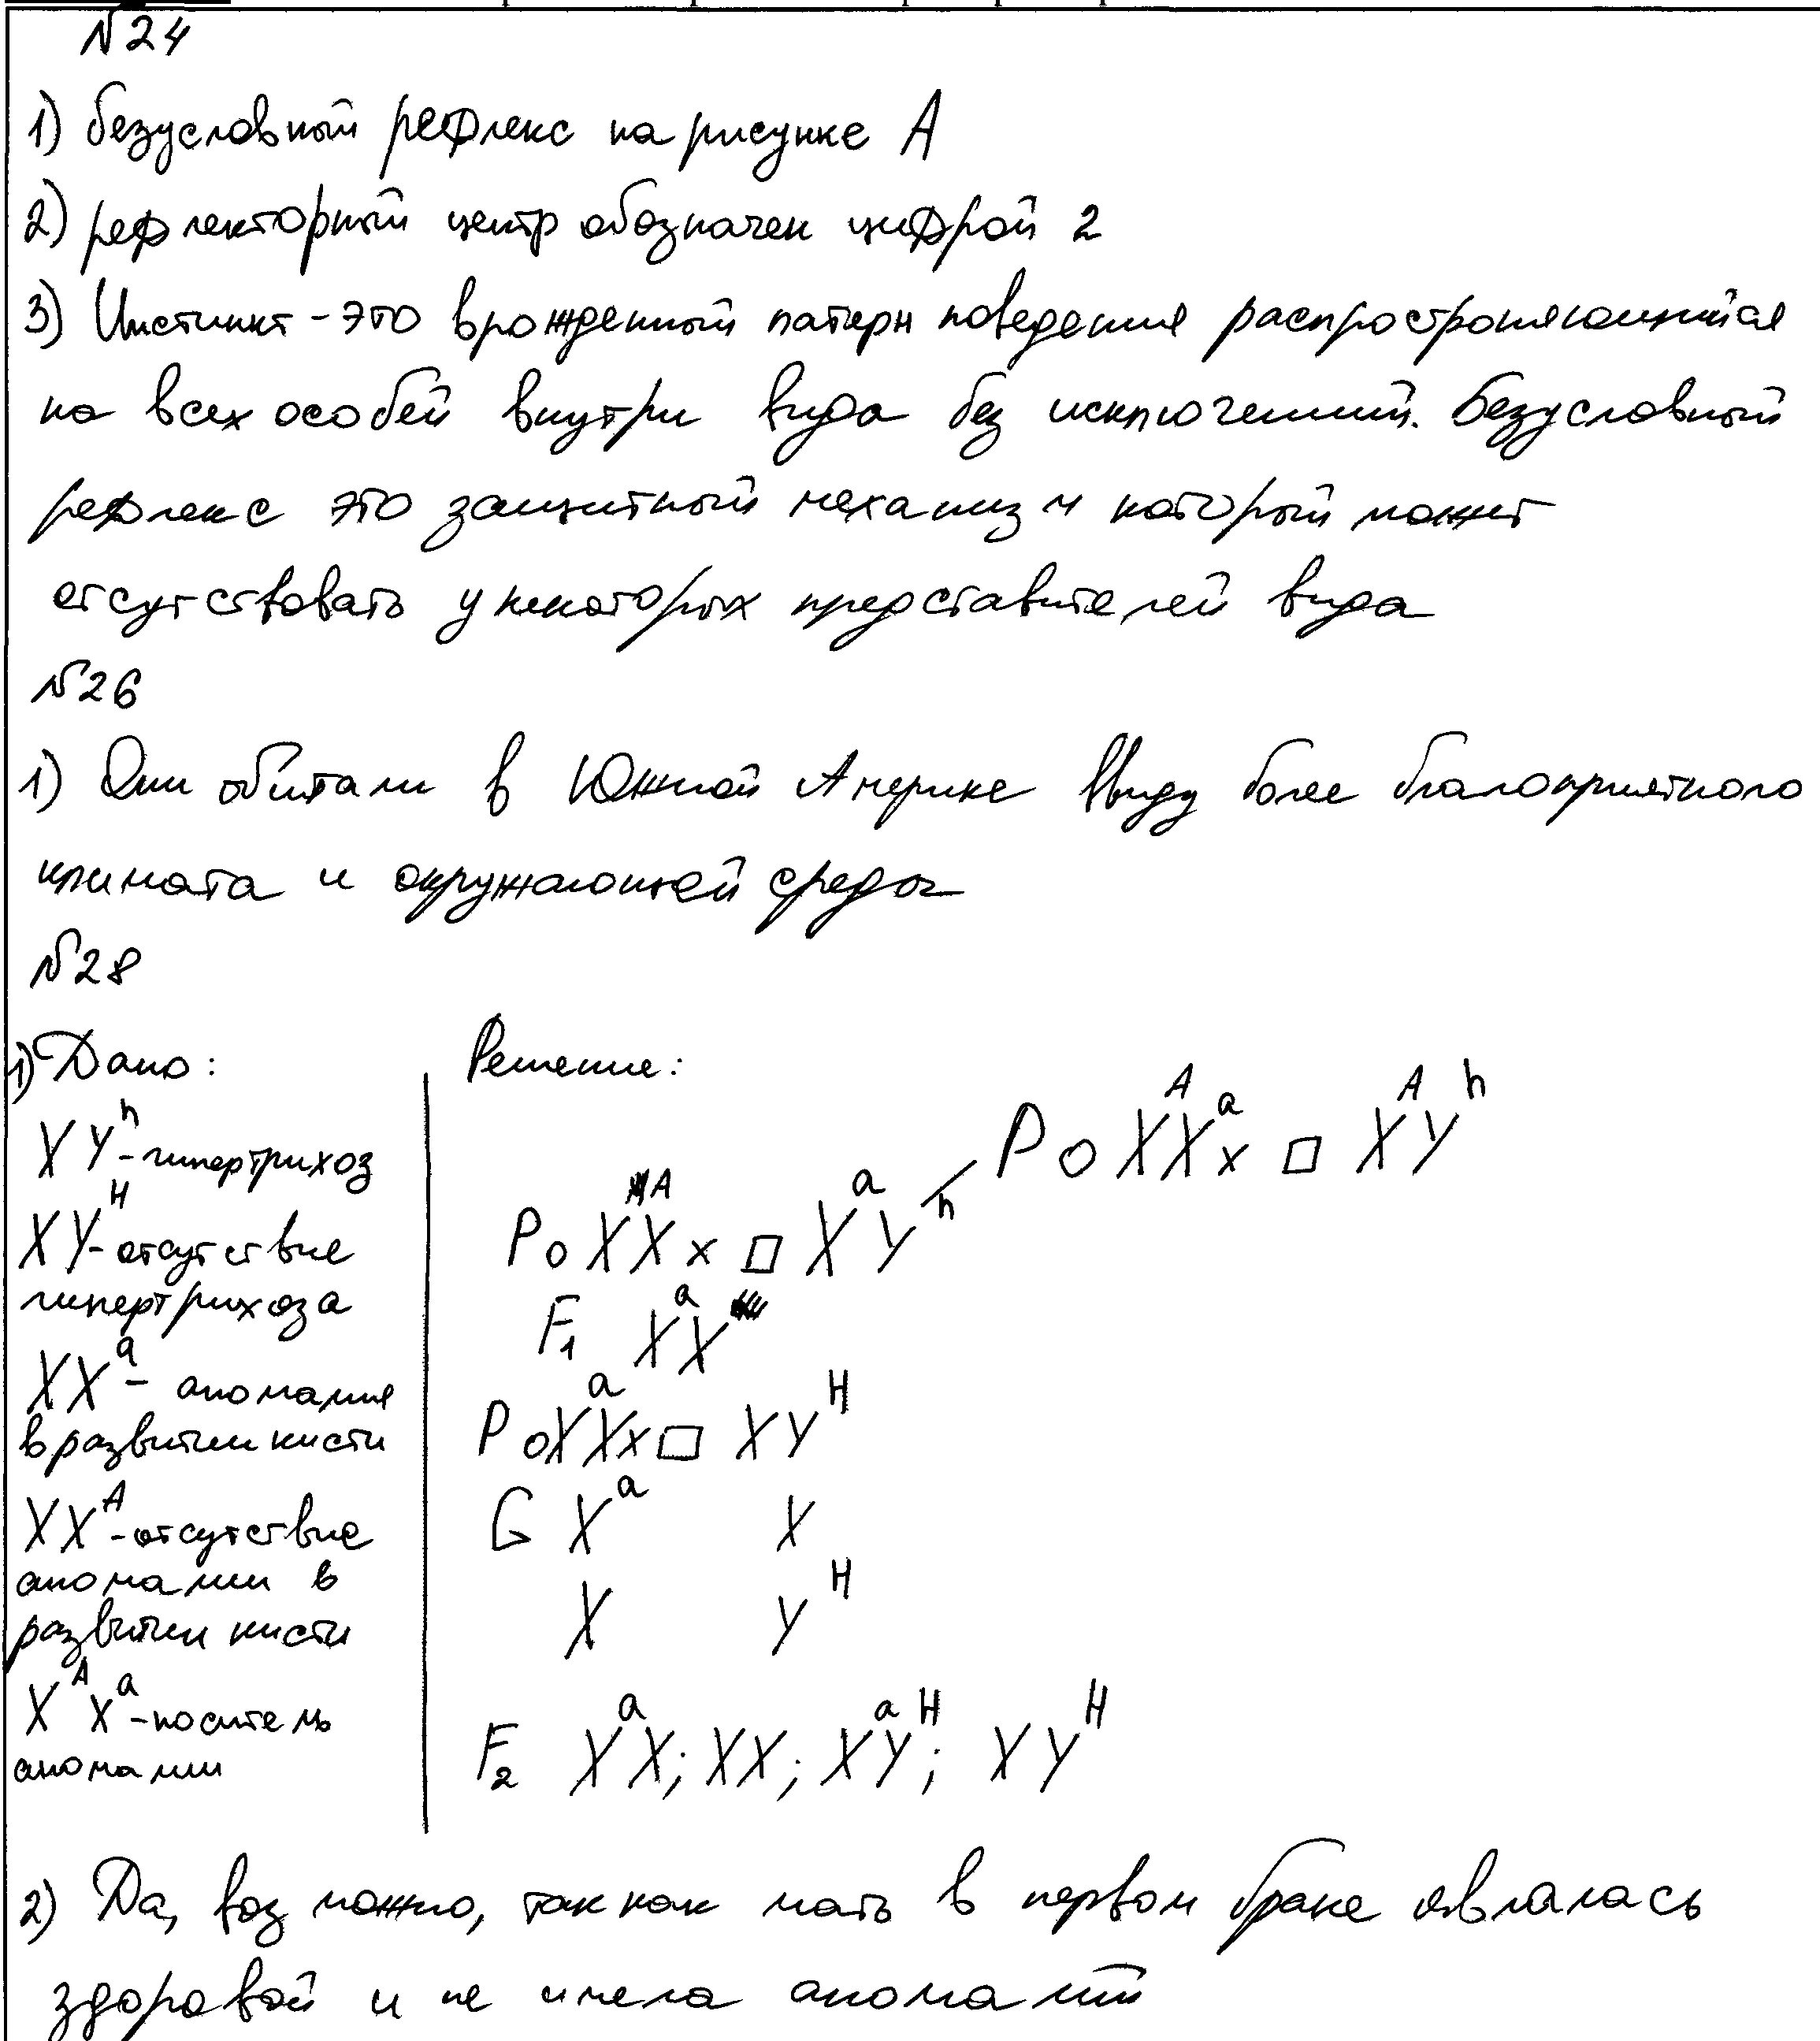 №24
1) безусловный рефлекс на рисунке А
2) рефлекторный центр обозначен цифрой 2
3) Инстинкт - это врожденный патерн поведения распростроняющийся
на всех особей внутри вида без исключений. Безусловный
рефлекс это защитный механизм который может
отсутствовать у некоторых представителей вида
№26
1) Они обитали в Южной Америке ввиду более благоприятного
климата и окружающей среды
№28
1) Дано: Решение:
XYʰ - гипертрихоз
XYᴴ - отсутствие
гипертрихоза
XXᵃ - аномалия
в развитии кисти
XXᴬ - отсутствие
аномалии в
развитии кисти
XᴬXᵃ - носитель
аномалии
P ○ XᴬXᵃ x □ XᴬYʰ
P ○ XXᴬ x □ XᵃYʰ
F₁ XᵃX
P ○ XᵃX x □ XYᴴ
G Xᵃ X
X Yᴴ
F₂ XᵃX; XX; XᵃYᴴ; XYᴴ
2) Да, возможно, так как мать в первом браке являлась
здоровой и не имела аномалий